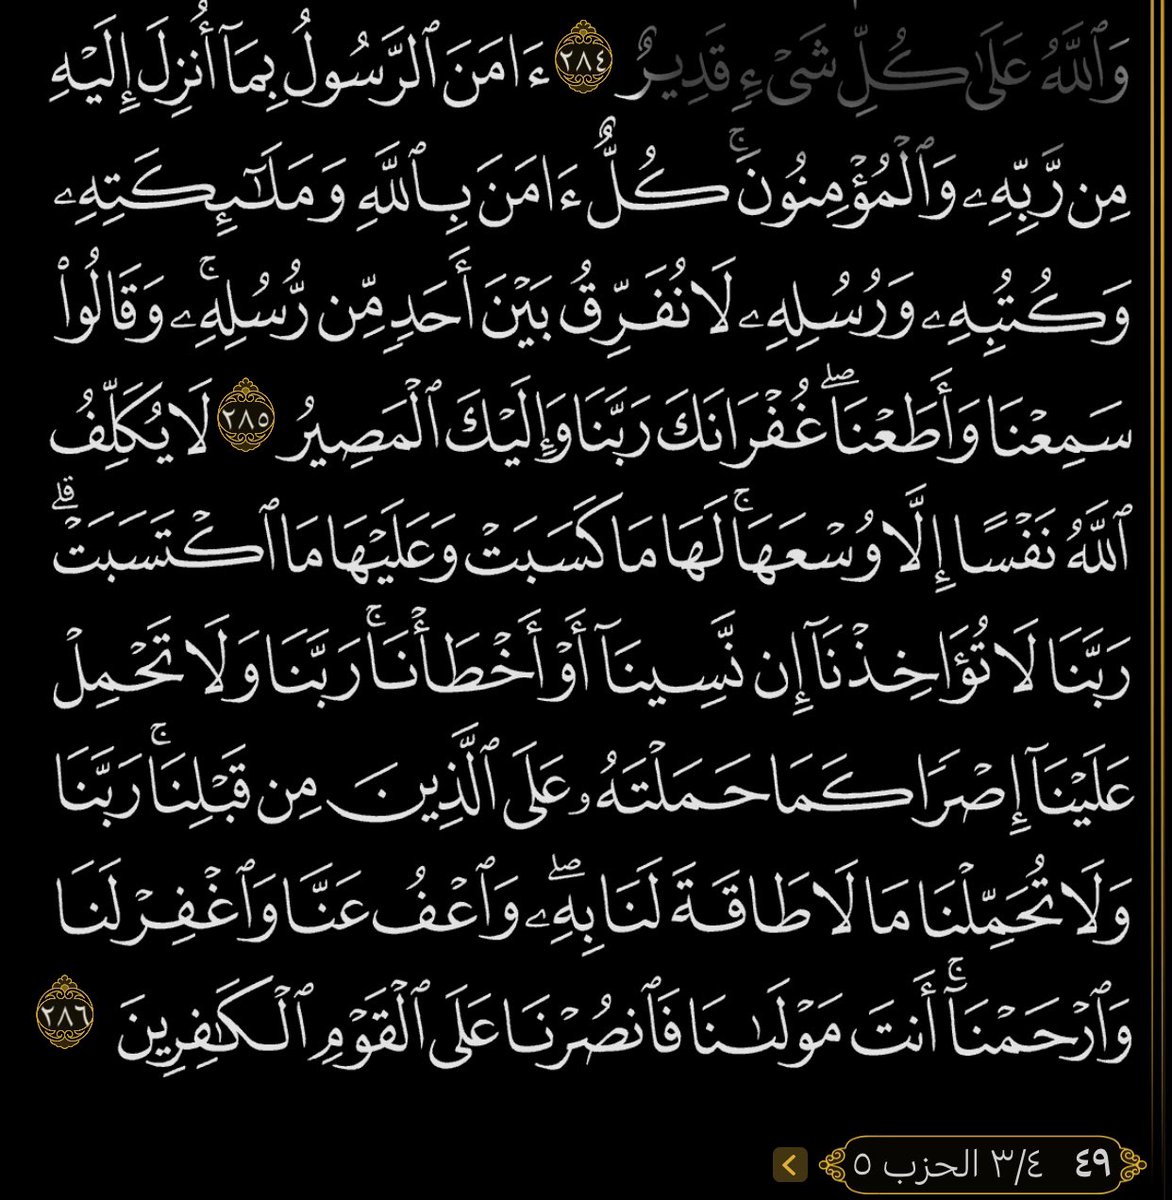 وَٱللَّهُ عَلَىٰ كُلِّ شَىْءٍ قَدِيرٌ ٢٨٤ ءَامَنَ ٱلرَّسُولُ بِمَآ أُنزِلَ إِلَيْهِ
مِن رَّبِّهِۦ وَٱلْمُؤْمِنُونَ ۚ كُلٌّ ءَامَنَ بِٱللَّهِ وَمَلَـٰٓئِكَتِهِۦ
وَكُتُبِهِۦ وَرُسُلِهِۦ لَا نُفَرِّقُ بَيْنَ أَحَدٍ مِّن رُّسُلِهِۦ ۚ وَقَالُوا۟
سَمِعْنَا وَأَطَعْنَا ۖ غُفْرَانَكَ رَبَّنَا وَإِلَيْكَ ٱلْمَصِيرُ ٢٨٥ لَا يُكَلِّفُ
ٱللَّهُ نَفْسًا إِلَّا وُسْعَهَا ۚ لَهَا مَا كَسَبَتْ وَعَلَيْهَا مَا ٱكْتَسَبَتْ ۗ
رَبَّنَا لَا تُؤَاخِذْنَآ إِن نَّسِينَآ أَوْ أَخْطَأْنَا ۚ رَبَّنَا وَلَا تَحْمِلْ
عَلَيْنَآ إِصْرًا كَمَا حَمَلْتَهُۥ عَلَى ٱلَّذِينَ مِن قَبْلِنَا ۚ رَبَّنَا
وَلَا تُحَمِّلْنَا مَا لَا طَاقَةَ لَنَا بِهِۦ ۖ وَٱعْفُ عَنَّا وَٱغْفِرْ لَنَا
وَٱرْحَمْنَآ ۚ أَنتَ مَوْلَىٰنَا فَٱنصُرْنَا عَلَى ٱلْقَوْمِ ٱلْكَـٰفِرِينَ ٢٨٦
٤٩ ٣/٤ الحزب ٥